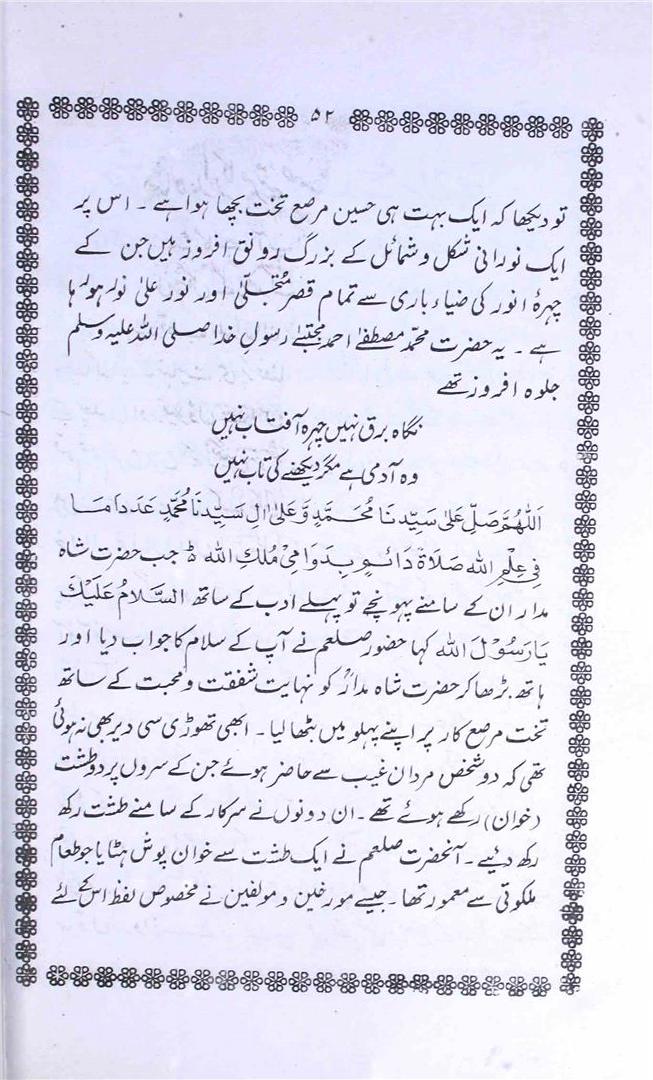 ۵۲
تو دیکھا کہ ایک بہت ہی حسین مرصع تخت بچھا ہوا ہے ۔ اس پر
ایک نورانی شکل و شمائل کے بزرگ رونق افروز ہیں جن کے
چہرۂ انور کی ضیاء باری سے تمام قصر مُتجلّٰی اور نور علیٰ نور ہو رہا
ہے ۔ یہ حضرت محمّد مصطفےٰ احمد مجتبےٰ رسولِ خدا صلی اللہ علیہ وسلم
جلوہ افروز تھے
نگاہ برق نہیں چہرہ آفتاب نہیں
وہ آدمی ہے مگر دیکھنے کی تاب نہیں
اَللّٰھُمَّ صَلِّ عَلیٰ سَیِّدِنَا مُحَمَّدٍ وَّعَلیٰ اٰلِ سَیِّدِنَا مُحَمَّدٍ عَدَدَ مَا
فِیْ عِلْمِ اللہ صَلَاۃً دَائِمٍ بِدَوَامِیْ مُلْکِ اللہ ط جب حضرت شاہ
مدار ان کے سامنے پہونچے تو پہلے ادب کے ساتھ اَلسَّلَامُ عَلَیْکَ
یَا رَسُوْلَ اللہ کہا حضور صلعم نے آپ کے سلام کا جواب دیا اور
ہاتھ بڑھا کر حضرت شاہ مدارؒ کو نہایت شفقت و محبت کے ساتھ
تخت مرصع کار پر اپنے پہلو میں بٹھا لیا ۔ ابھی تھوڑی سی دیر بھی نہ ہوئی
تھی کہ دو شخص مردان غیب سے حاضر ہوئے جن کے سروں پر دو طشت
(خوان) رکھے ہوئے تھے ۔ ان دونوں نے سرکار کے سامنے طشت رکھ
رکھ دئیے ۔ آنحضرت صلعم نے ایک طشت سے خوان پوش ہٹایا جو طعام
ملکوتی سے معمور تھا ۔ جیسے مورخین و مولفین نے مخصوص لفظ اس کے لئے